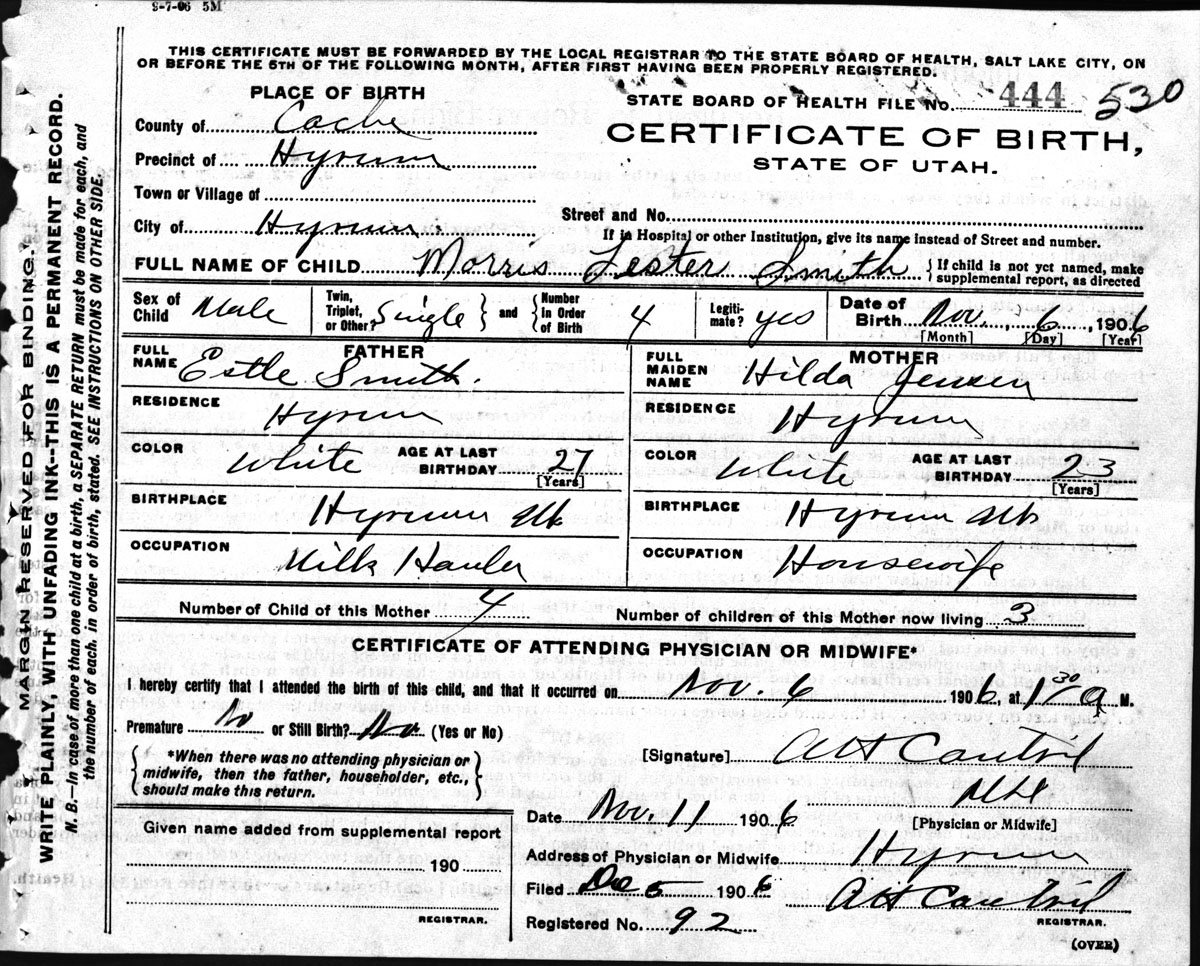 9-7-06 5M
THIS CERTIFICATE MUST BE FORWARDED BY THE LOCAL REGISTRAR TO THE STATE BOARD OF HEALTH, SALT LAKE CITY, ON
OR BEFORE THE 5TH OF THE FOLLOWING MONTH, AFTER FIRST HAVING BEEN PROPERLY REGISTERED.
PLACE OF BIRTH
STATE BOARD OF HEALTH FILE No. 444 530
County of Cache
CERTIFICATE OF BIRTH,
Precinct of Hyrum
STATE OF UTAH.
Town or Village of
Street and No.
City of Hyrum.
If in Hospital or other Institution, give its name instead of Street and number.
FULL NAME OF CHILD Morris Lester Smith { If child is not yet named, make supplemental report, as directed
Sex of Child Male Twin, Triplet, or Other? Single } and { Number in Order of Birth 4 Legiti-mate? yes Date of Birth Nov., 6, 1906
[Month] [Day] [Year]
FATHER
FULL NAME Estle Smith.
MOTHER
FULL MAIDEN NAME Hilda Jensen
RESIDENCE Hyrum
RESIDENCE Hyrum
COLOR White AGE AT LAST BIRTHDAY 27 [Years]
COLOR White AGE AT LAST BIRTHDAY 23 [Years]
BIRTHPLACE Hyrum Ut
BIRTHPLACE Hyrum Ut
OCCUPATION Milk Hauler
OCCUPATION Housewife
Number of Child of this Mother 4 Number of children of this Mother now living 3
CERTIFICATE OF ATTENDING PHYSICIAN OR MIDWIFE*
I hereby certify that I attended the birth of this child, and that it occurred on Nov. 6 1906, at 1 30 a M.
Premature No or Still Birth? No (Yes or No)
{ *When there was no attending physician or midwife, then the father, householder, etc., should make this return. }
[Signature] A H Cantril
Date Nov. 11 1906
[Physician or Midwife]
Given name added from supplemental report
190
REGISTRAR.
Address of Physician or Midwife Hyrum
Filed Dec 5 1906 A H Cantril
REGISTRAR.
Registered No. 92
(OVER)
MARGIN RESERVED FOR BINDING.
WRITE PLAINLY, WITH UNFADING INK--THIS IS A PERMANENT RECORD.
N. B.—In case of more than one child at a birth, a SEPARATE RETURN must be made for each, and
the number of each, in order of birth, stated. SEE INSTRUCTIONS ON OTHER SIDE.